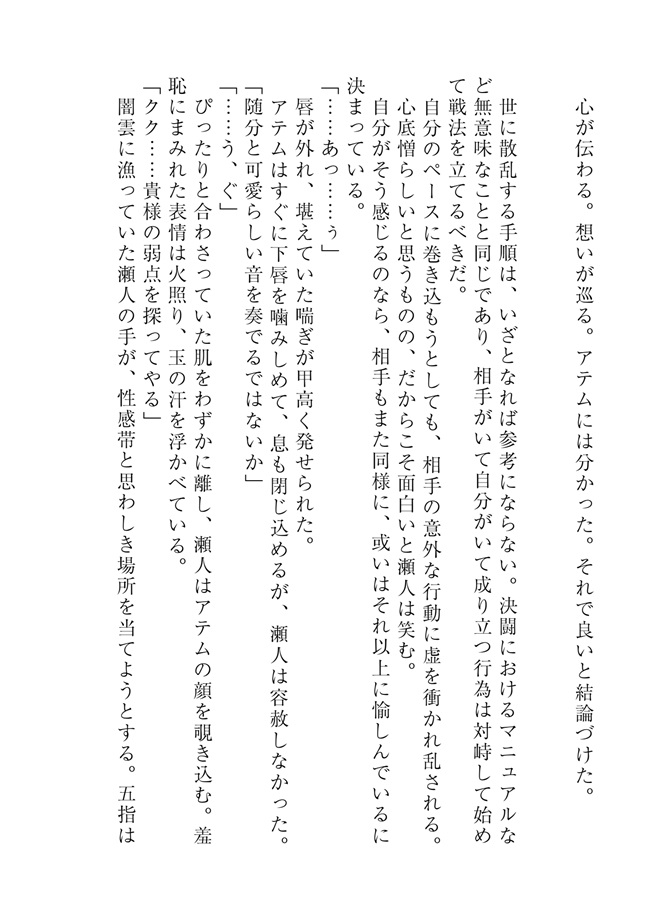 心が伝わる。想いが巡る。アテムには分かった。それで良いと結論づけた。
世に散乱する手順は、いざとなれば参考にならない。決闘におけるマニュアルな
ど無意味なことと同じであり、相手がいて自分がいて成り立つ行為は対峙して始め
て戦法を立てるべきだ。
自分のペースに巻き込もうとしても、相手の意外な行動に虚を衝かれ乱される。
心底憎らしいと思うものの、だからこそ面白いと瀬人は笑む。
自分がそう感じるのなら、相手もまた同様に、或いはそれ以上に愉しんでいるに
決まっている。
「……あっ……ぅ」
唇が外れ、堪えていた喘ぎが甲高く発せられた。
アテムはすぐに下唇を噛みしめて、息も閉じ込めるが、瀬人は容赦しなかった。
「随分と可愛らしい音を奏でるではないか」
「……う、ぐ」
ぴったりと合わさっていた肌をわずかに離し、瀬人はアテムの顔を覗き込む。羞
恥にまみれた表情は火照り、玉の汗を浮かべている。
「クク……貴様の弱点を探ってやる」
闇雲に漁っていた瀬人の手が、性感帯と思わしき場所を当てようとする。五指は